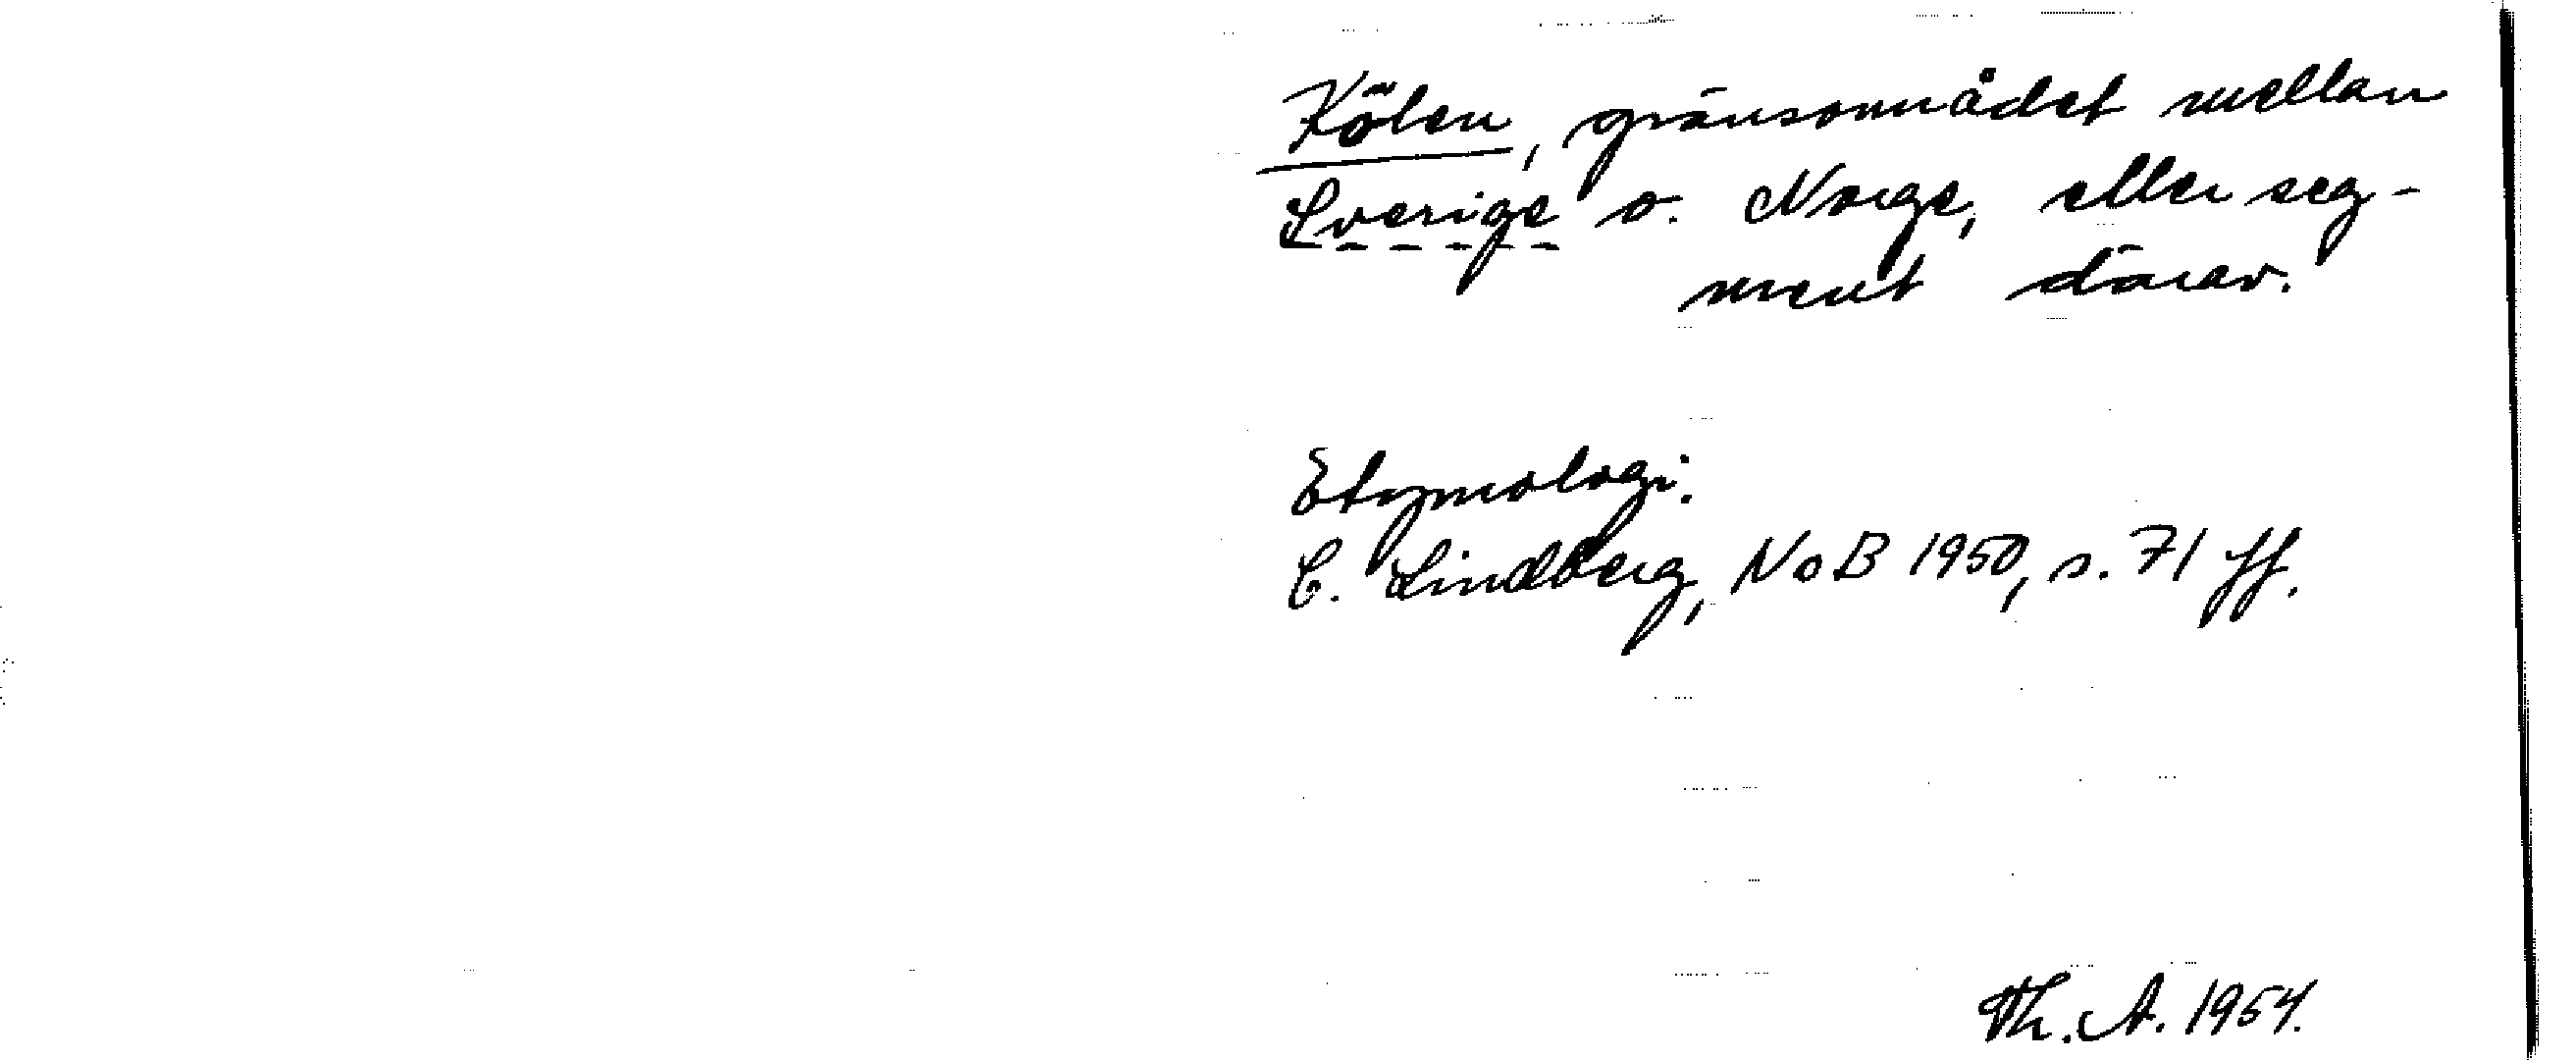 Kölen, gränsområdet mellan
Sverige o. Norge, eller seg-
ment därav.
Etymologi.
C. Lindberg, NoB 1950, s. 71 ff.
Th. A. 1954.